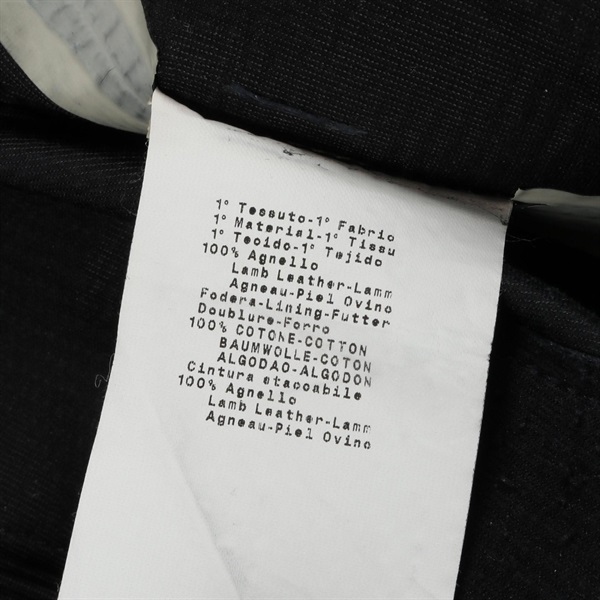 1° Tessuto-1° Fabric
1° Material-1° Tissu
1° Tecido-1° Tejido
100% Agnello
Lamb Leather-Lamm
Agneau-Piel Ovino
Fodera-Lining-Futter
Doublure-Forro
100% COTONE-COTTON
BAUMWOLLE-COTON
ALGODAO-ALGODON
Cintura staccabile
100% Agnello
Lamb Leather-Lamm
Agneau-Piel Ovino